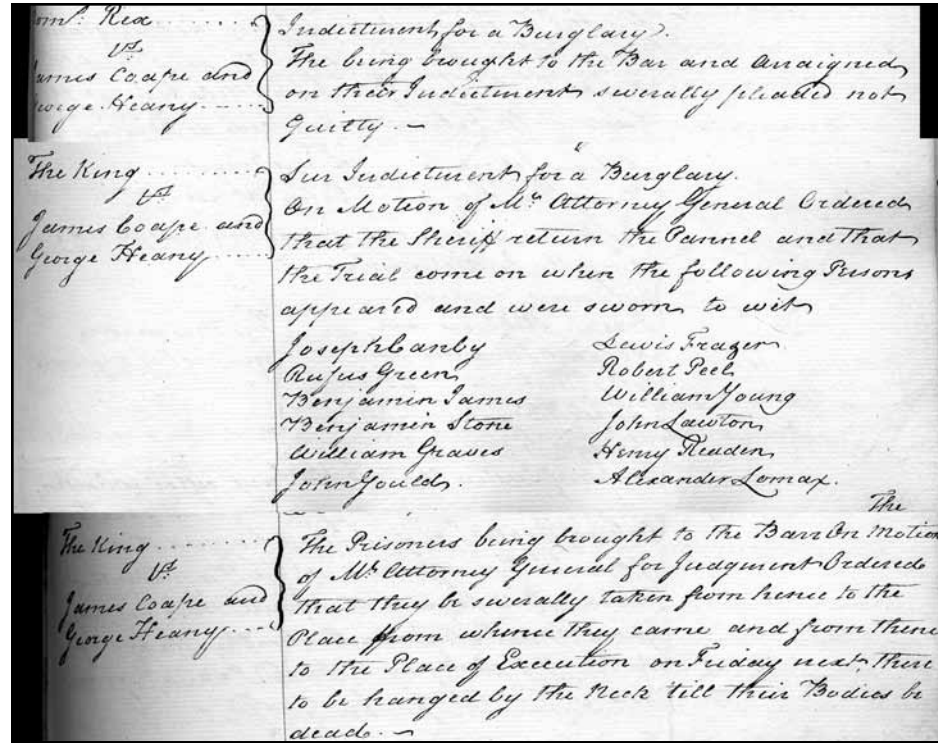 Domˢ. Rex
vˢ.
James Coape and
George Heany
Indictment for a Burglary.
The being brought to the Bar and Arraigned
on their Indictment severally pleaded not
Guilty. —
The King
vˢ.
James Coape and
George Heany
Sur Indictment for a Burglary.
On Motion of Mʳ. Attorney General Ordered
that the Sheriff return the Pannel and that
the Trial come on when the following Persons
appeared and were sworn to wit
Joseph Canby
Rufus Green
Benjamin James
Benjamin Stone
William Graves
John Gould.
Lewis Frazer
Robert Peel
William Young
John Lawton
Henry Readen
Alexander Lomax.
The
The King
vˢ.
James Coape and
George Heany
The Prisoners being brought to the Barr On Motion
of Mʳ. Attorney General for Judgment Ordered
that they be severally taken from hence to the
Place from whence they came and from thence
to the Place of Execution on Friday next there
to be hanged by the Neck till their Bodies be
dead. —